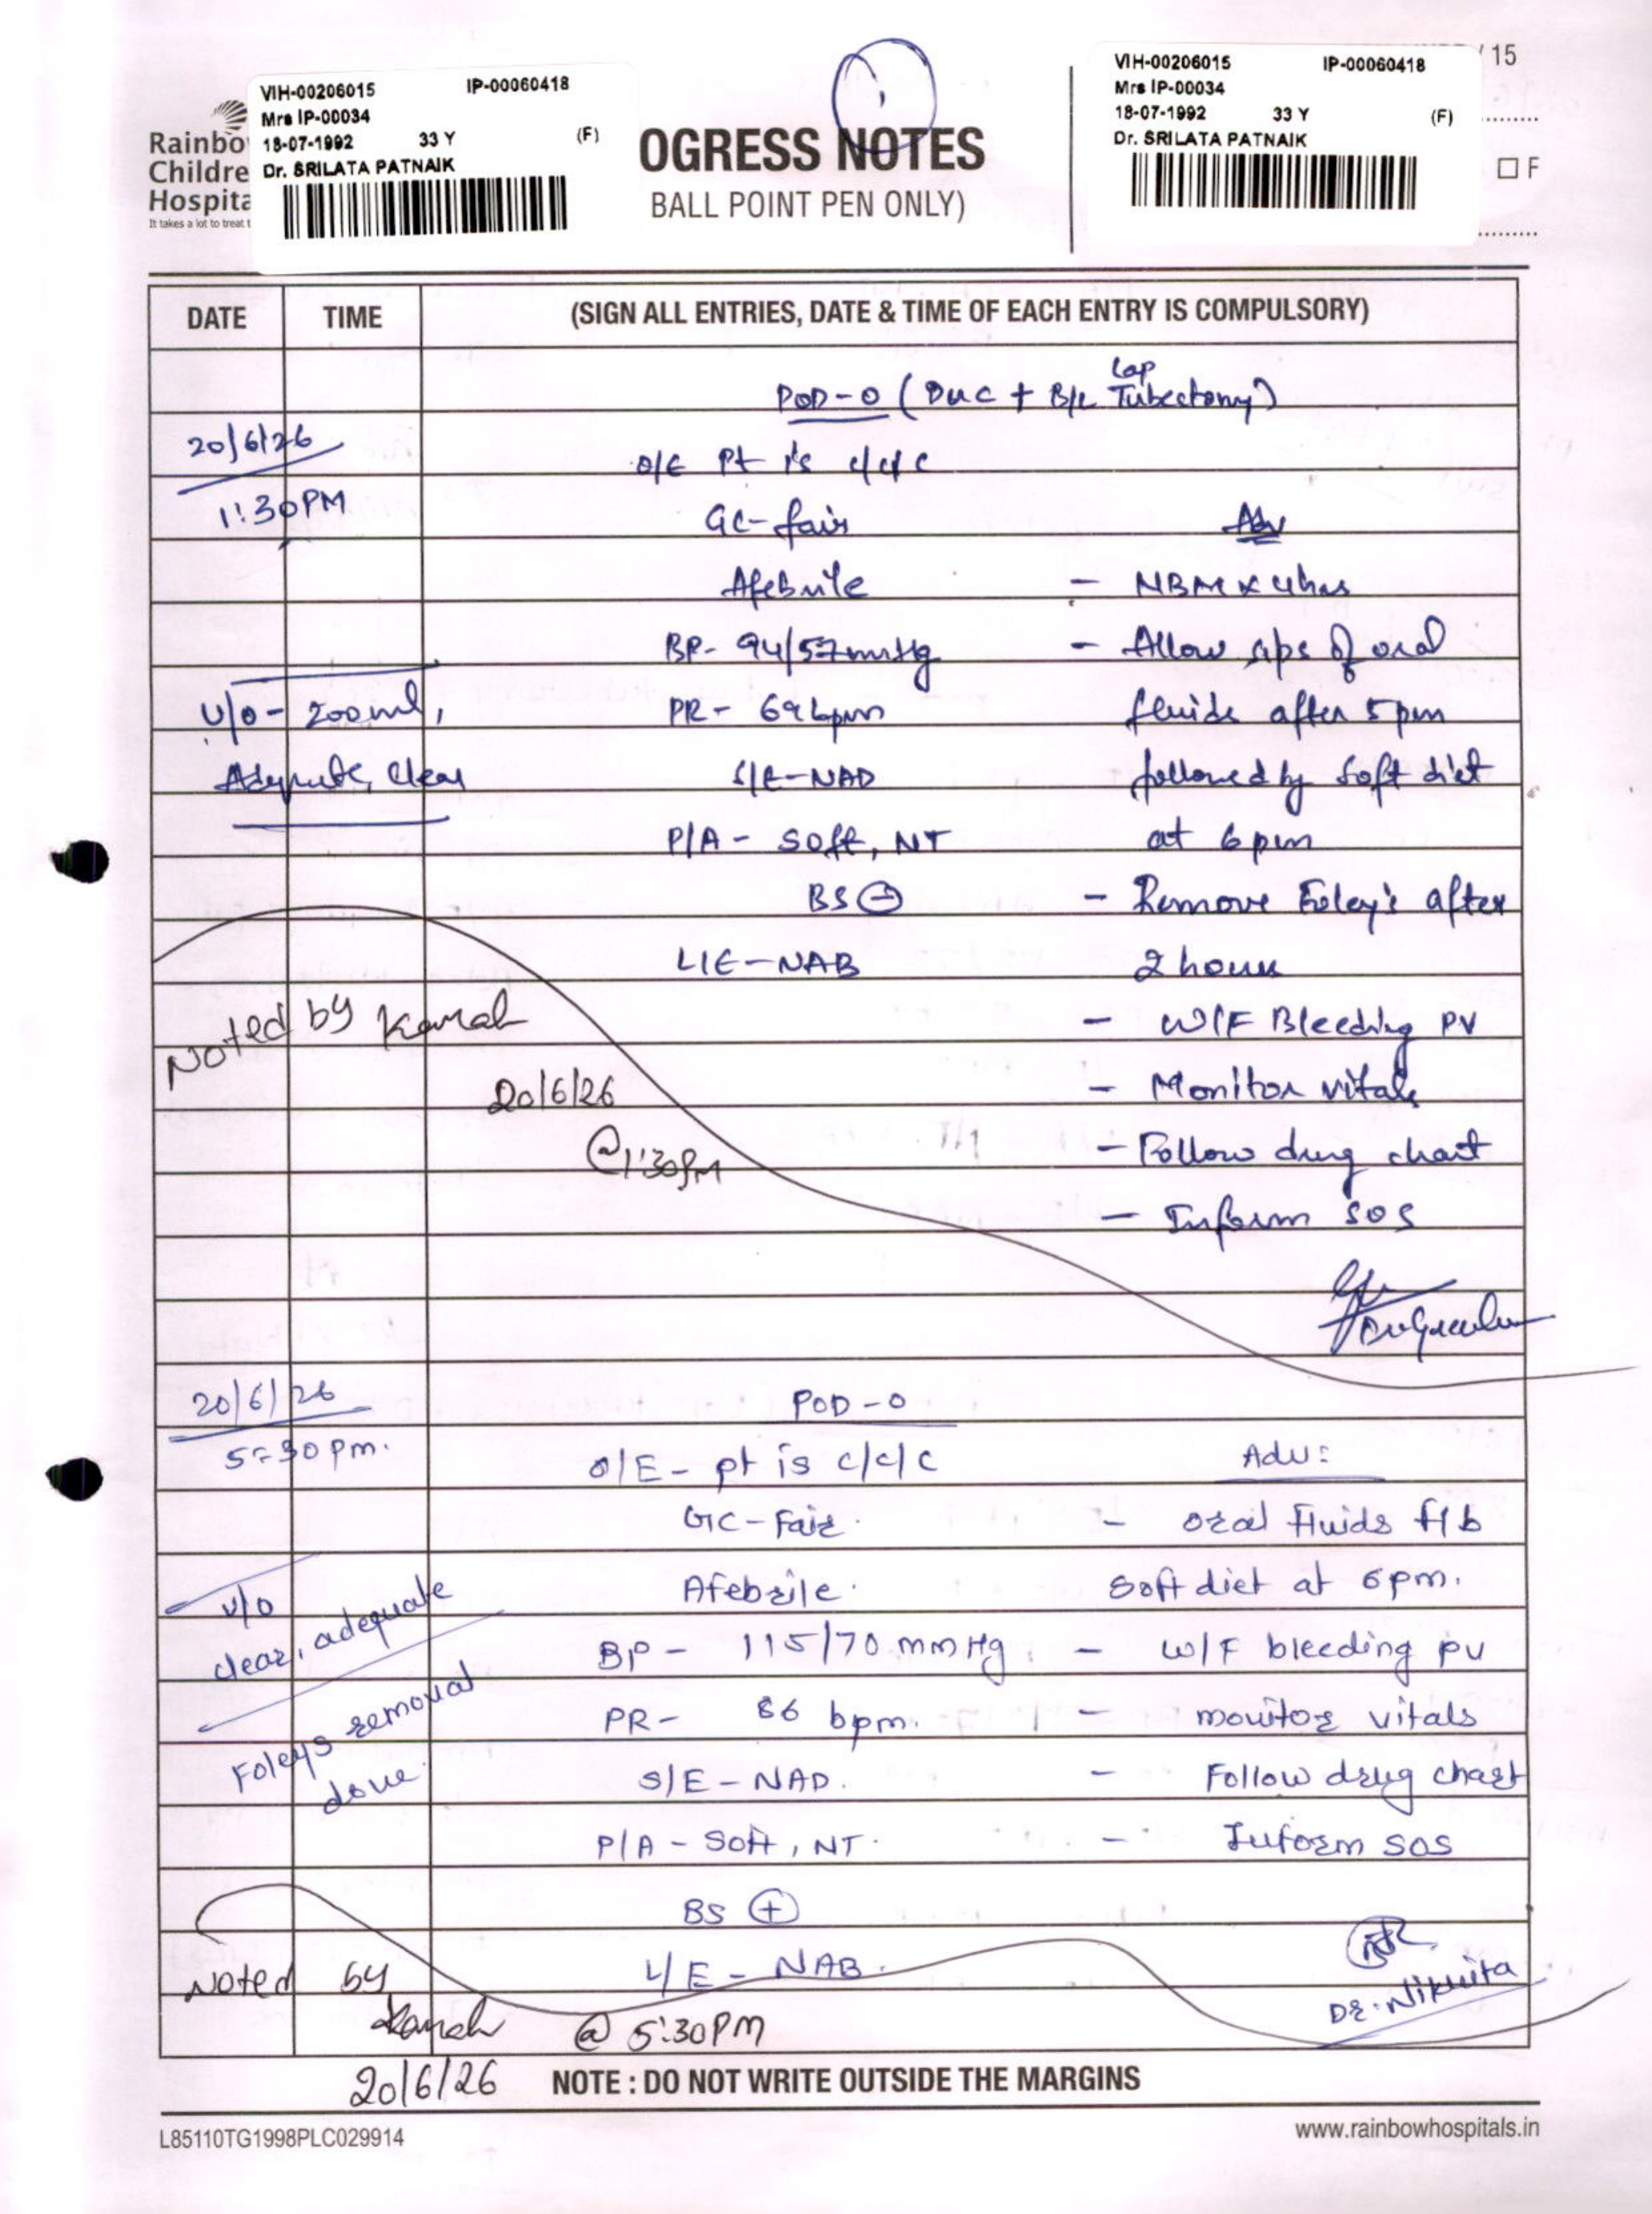 VIH-00206015 IP-00060418
Mrs IP-00034
18-07-1992 33 Y (F)
Dr. SRILATA PATNAIK
Rainbo
Childre
Hospita
It takes a lot to treat t
OGRESS NOTES
BALL POINT PEN ONLY)
/ 15
VIH-00206015 IP-00060418
Mrs IP-00034
18-07-1992 33 Y (F)
Dr. SRILATA PATNAIK
F
DATE TIME (SIGN ALL ENTRIES, DATE & TIME OF EACH ENTRY IS COMPULSORY)
Lap
POD-0 (D&C + B/L Tubectomy)
20/6/26
O/E Pt is c/c/c
1:30PM
GC-fair Adv
Afebrile - NBM x 4hrs
BP- 94/57mmHg - Allow sips of oral
U/O- 200ml, PR- 69bpm fluids after 5pm
Adequate, clear S/E-NAD followed by soft diet
P/A- soft, NT at 6pm
BS - Remove Foley's after
L/E-NAB 2 hours
Noted by Kamal - W/F Bleeding PV
20/6/26 - Monitor vitals
@1:30PM - Follow drug chart
- Inform SOS
20/6/26 POD-0
5:30pm. O/E- pt is c/c/c Adv:
GC-Fair. - oral fluids f/b
U/O Afebrile. soft diet at 6pm.
clear, adequate BP- 115/70 mmHg. - W/F bleeding pv
Foleys removal PR- 86 bpm. - monitor vitals
done. S/E-NAD. - Follow drug chart
P/A- Soft, NT. - Inform SOS
BS (+)
Noted by L/E- NAB. Dr. Nikhita
Kamal @ 5:30PM
20/6/26 NOTE : DO NOT WRITE OUTSIDE THE MARGINS
L85110TG1998PLC029914 www.rainbowhospitals.in